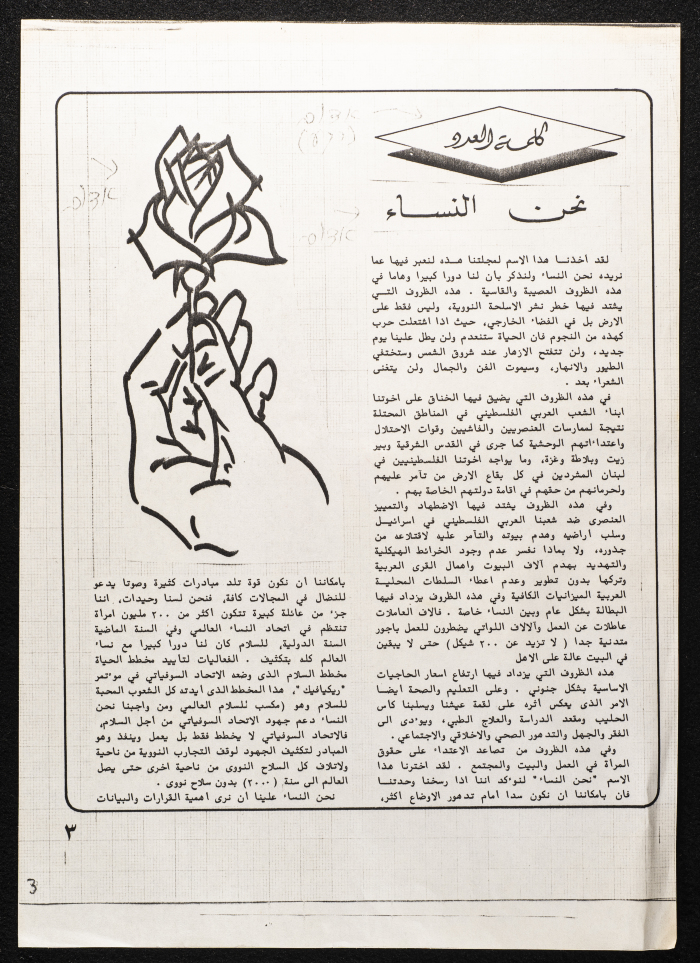 كلمة العدد
نحن النساء
لقد اخذنا هذا الاسم لمجلتنا هذه لنعبر فيها عما
نريده نحن النساء ولنذكر بان لنا دورا كبيرا وهاما في
هذه الظروف العصيبة والقاسية . هذه الظروف التي
يشتد فيها خطر نشر الاسلحة النووية، وليس فقط على
الارض بل في الفضاء الخارجي، حيث اذا اشتعلت حرب
كهذه من النجوم فان الحياة ستنعدم ولن يطل علينا يوم
جديد، ولن تتفتح الازهار عند شروق الشمس وستختفي
الطيور والانهار، وسيموت الفن والجمال ولن يتغنى
الشعراء بعد .
في هذه الظروف التي يضيق فيها الخناق على اخوتنا
ابناء الشعب العربي الفلسطيني في المناطق المحتلة
نتيجة لممارسات العنصريين والفاشيين وقوات الاحتلال
واعتداءاتهم الوحشية كما جرى في القدس الشرقية وبير
زيت وبلاطة وغزة، وما يواجه اخوتنا الفلسطينيين في
لبنان المشردين في كل بقاع الارض من تآمر عليهم
ولحرمانهم من حقهم في اقامة دولتهم الخاصة بهم .
وفي هذه الظروف يشتد فيها الاضطهاد والتمييز
العنصرى ضد شعبنا العربي الفلسطيني في اسرائيل
وسلب اراضيه وهدم بيوته والتآمر عليه لاقتلاعه من
جذوره، ولا بماذا نفسر عدم وجود الخرائط الهيكلية
والتهديد بهدم آلاف البيوت واهمال القرى العربية
وتركها بدون تطوير وعدم اعطاء السلطات المحلية
العربية الميزانيات الكافية وفي هذه الظروف يزداد فيها
البطالة بشكل عام وبين النساء خاصة . فالاف العاملات
عاطلات عن العمل وآلالاف اللواتي يضطرون للعمل باجور
متدنية جدا ( لا تزيد عن ٢٠٠ شيكل) حتى لا يبقين
في البيت عالة على الاهل
هذه الظروف التي يزداد فيها ارتفاع اسعار الحاجيات
الاساسية بشكل جنوني . وعلى التعليم والصحة ايضا
الامر الذى يعكس أثره على لقمة عيشنا ويسلبنا كأس
الحليب ومقعد الدراسة والعلاج الطبي، ويوءدى الى
الفقر والجهل والتدهور الصحي والاخلاقي والاجتماعي .
وفي هذه الظروف من تصاعد الاعتداء على حقوق
المرأة في العمل والبيت والمجتمع . لقد اخترنا هذا
الاسم "نحن النساء" لنوءكد اننا اذا رسخنا وحدتنا
فان بامكاننا ان نكون سدا امام تدهور الاوضاع اكثر،
بامكاننا ان نكون قوة تلد مبادرات كثيرة وصوتا يدعو
للنضال في المجالات كافة، فنحن لسنا وحيدات، اننا
جزء من عائلة كبيرة تتكون أكثر من ٢٠٠ مليون امرأة
تنتظم في اتحاد النساء العالمي وفي السنة الماضية
السنة الدولية، للسلام كان لنا دورا كبيرا مع نساء
العالم كله بتكثيف . الفعاليات لتأييد مخطط الحياة
مخطط السلام الذى وضعه الاتحاد السوفياتي في موءتمر
"ريكيافيك"، هذا المخطط الذى ايدته كل الشعوب المحبة
للسلام وهو (مكسب للسلام العالمي ومن واجبنا نحن
النساء دعم جهود الاتحاد السوفياتي من اجل السلام،
فالاتحاد السوفياتي لا يخطط فقط بل يعمل وينفذ وهو
المبادر لتكثيف الجهود لوقف التجارب النووية من ناحية
ولاتلاف كل السلاح النووى من ناحية اخرى حتى يصل
العالم الى سنة (٢٠٠٠) بدون سلاح نووى .
نحن النساء علينا أن نرى اهمية القرارات والبيانات
٣
3